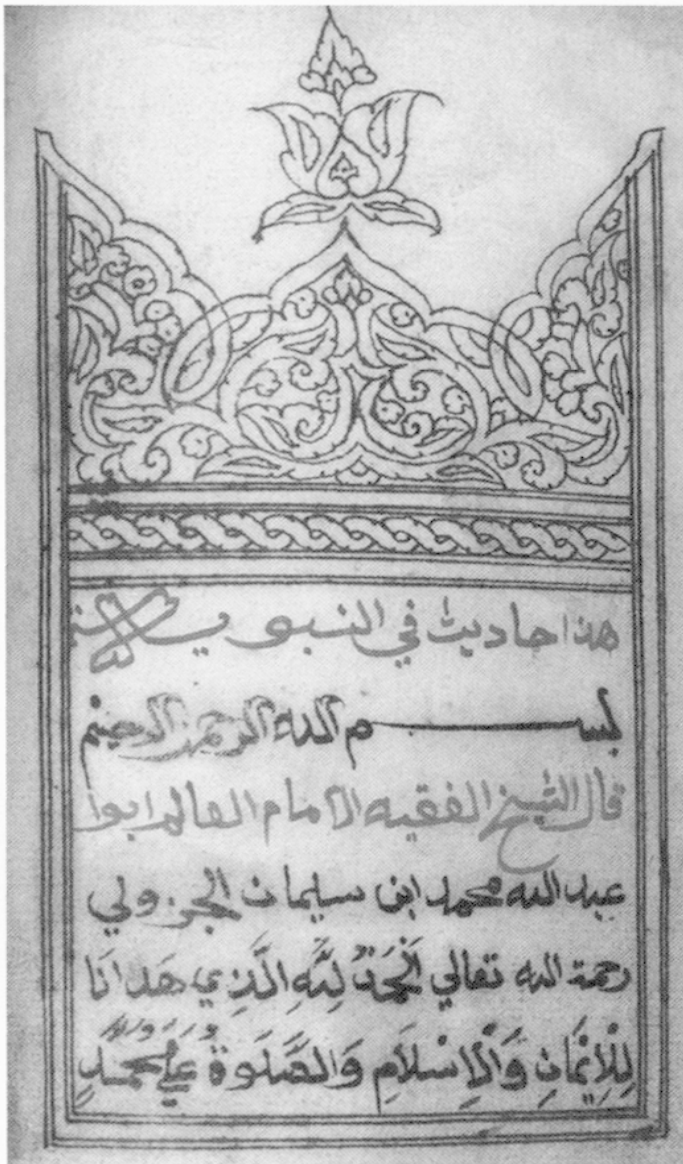 هذا حاديث في النبوي
بسم الله الرحمن الرحيم
قال الشيخ الفقيه الامام العالم ابوا
عبد الله محمد ابن سليمان الجزولي
رحمة الله تعالي اَلْحَمْدُ لِلَّهِ الَّذِي هَدَانَا
لِلْاِيْمَانِ وَالْاِسْلَامِ وَالصَّلَوةُ عَلَي مُحَمَّدٍ